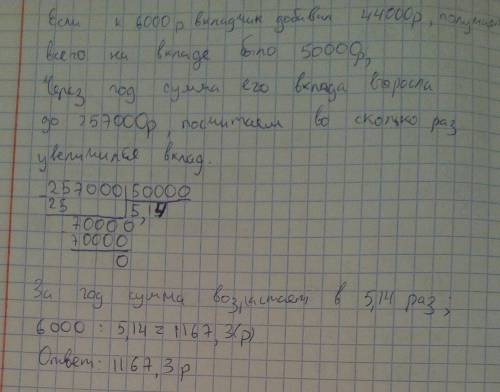 Если к 6000 р вкладчик добавил 44000р,
всего на вкладе было 50000р,
Через год сумма его вклада выросла
до 257000р, посчитаем во сколько раз
увеличился вклад.
257000 50000
25 5,14
70000
70000
0
За год сумма возрастает в 5,14 раз;
6000 : 5,14 = 1167,3(р)
Ответ: 1167,3 р